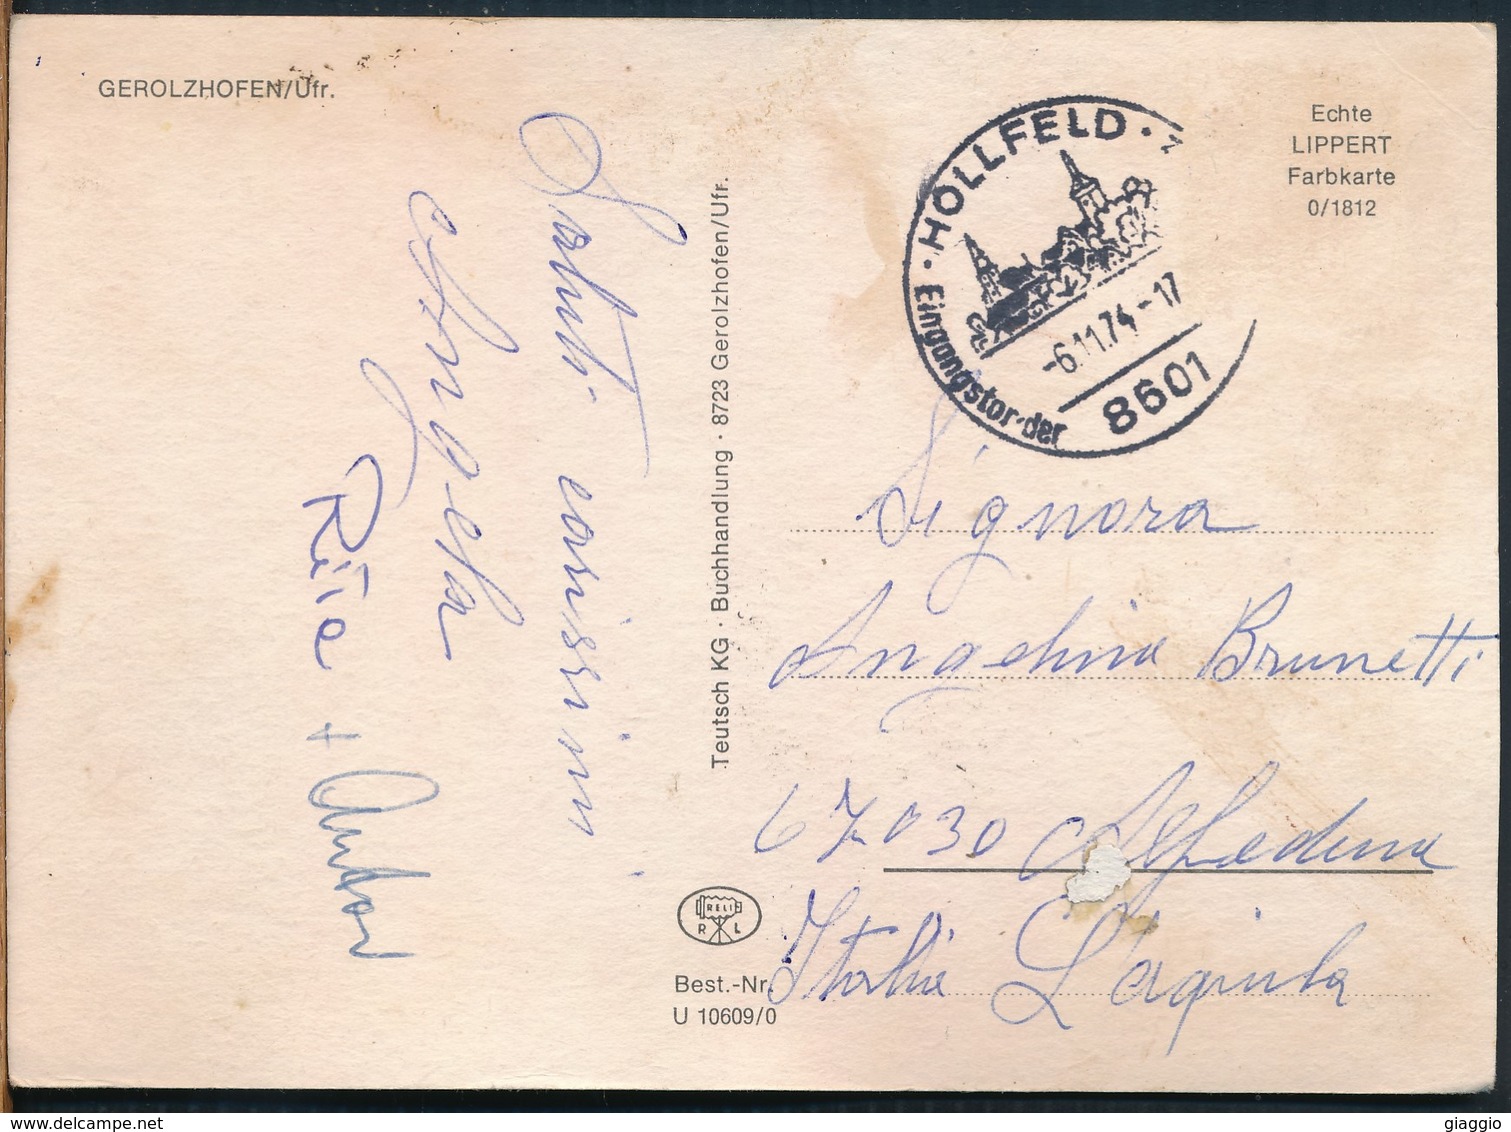 GEROLZHOFEN/Ufr.
Echte
LIPPERT
Farbkarte
0/1812
· HOLLFELD ·
Eingangstor·der
-6.11.74-17
8601
Saluti carissimi
Angela
Rita + Anton
Teutsch KG · Buchhandlung · 8723 Gerolzhofen/Ufr.
Signora
Angelina Brunetti
67030 Alfedena
Italia L'aquila
RELI
R L
Best.-Nr.
U 10609/0
www.delcampe.net
giaggio